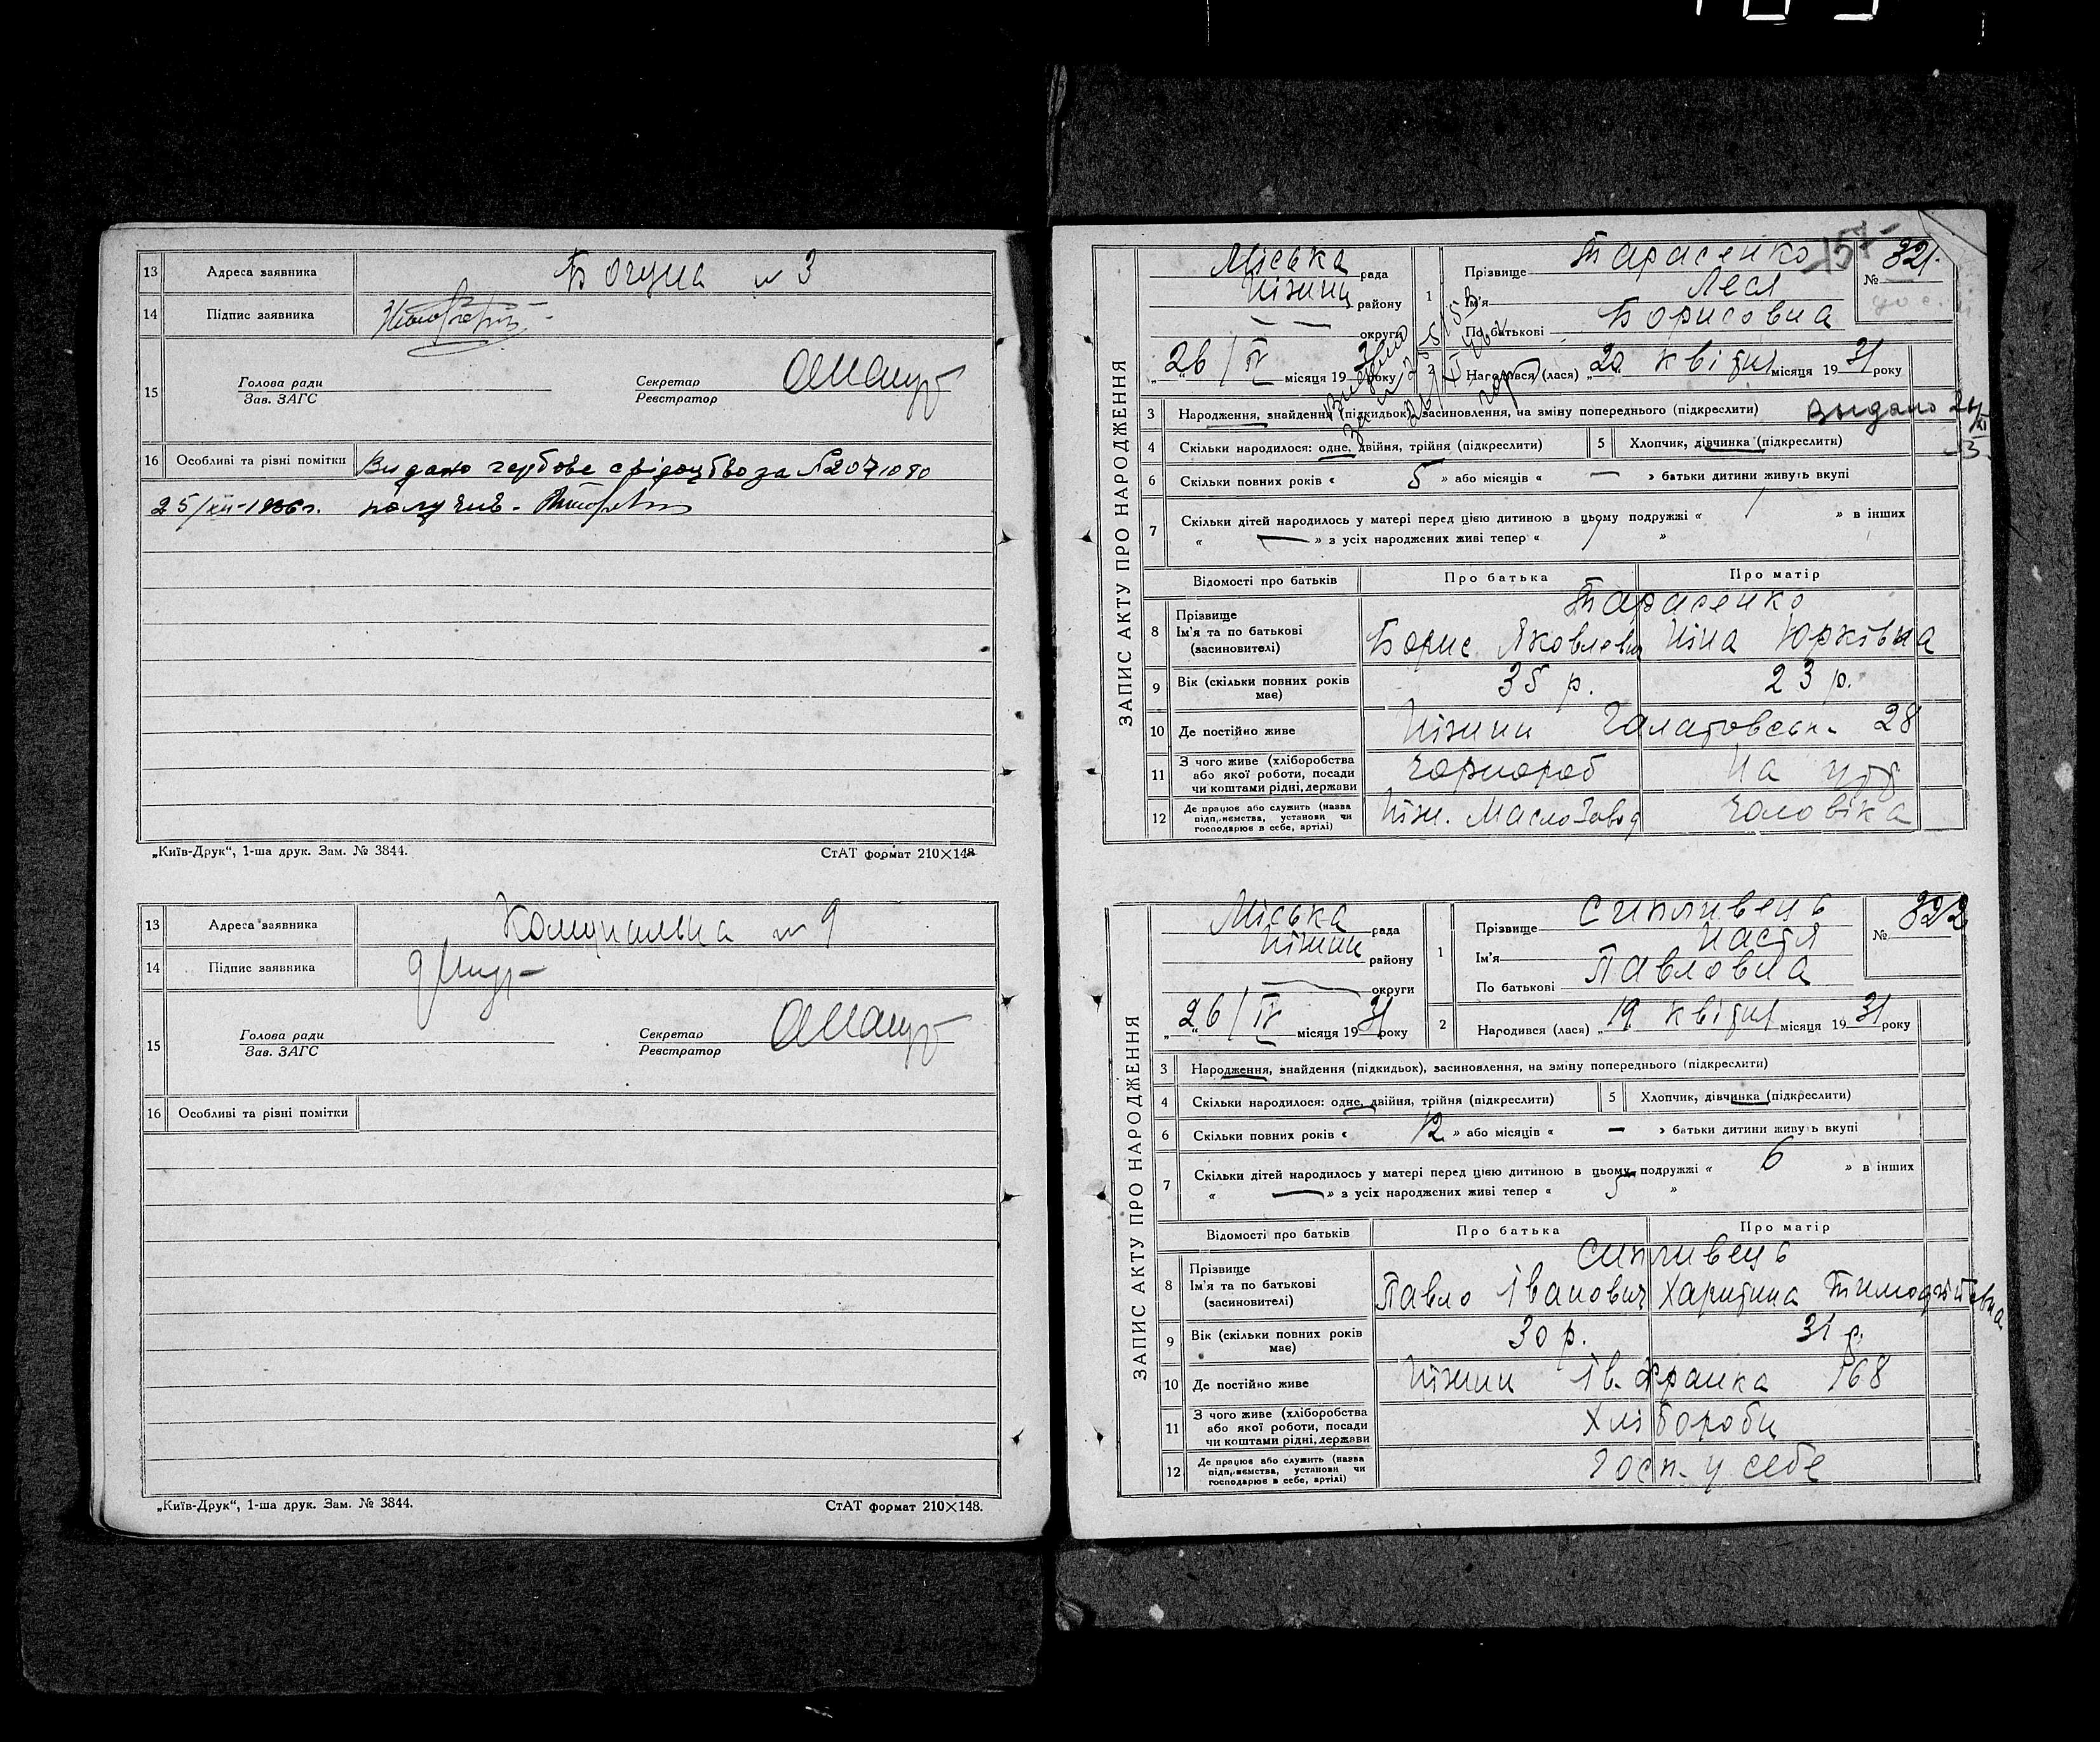 13 Адреса заявника Богуна № 3
14 Підпис заявника
15 Голова ради
Зав. ЗАГС
Секретар
Реєстратор
16 Особливі та різні помітки Видано гербове свідоцтво за № 2071080
25/XII-1936г. получив.
„Київ-Друк“, 1-ша друк. Зам. № 3844. СтАТ формат 210×148
13 Адреса заявника Комунальна № 9
14 Підпис заявника
15 Голова ради
Зав. ЗАГС
Секретар
Реєстратор
16 Особливі та різні помітки
„Київ-Друк“, 1-ша друк. Зам. № 3844. СтАТ формат 210×148.
157
ЗАПИС АКТУ ПРО НАРОДЖЕННЯ
Міська рада
Ніжин району
округи
„26/IV місяця 1931 року
1 Прізвище Тарасенко
Ім'я Леся
По батькові Борисовна
№ 321.
2 Народився (лася) „20 квітня місяця 1931 року
3 Народження, знайдення (підкидьок), засиновлення, на зміну попереднього (підкреслити)
Выдано
4 Скільки народилося: одне, двійня, трійня (підкреслити) 5 Хлопчик, дівчинка (підкреслити)
6 Скільки повних років « 5 » або місяців « — » батьки дитини живуть вкупі
7 Скільки дітей народилось у матері перед цією дитиною в цьому подружжі « 1 » в інших
« — » з усіх народжених живі тепер « 1 »
Відомості про батьків Про батька Про матір
8 Прізвище
Ім'я та по батькові
(засиновителі)
Тарасенко
Борис Яковлевич Ніна Юрківна
9 Вік (скільки повних років має) 35 р. 23 р.
10 Де постійно живе Ніжин Галатовськ. 28
11 З чого живе (хліборобства або якої роботи, посади чи коштами рідні, держави Чорнороб На утр
12 Де працює або служить (назва підприємства, установи чи господарює в себе, артілі) Ніж. МаслоЗавод чоловіка
ЗАПИС АКТУ ПРО НАРОДЖЕННЯ
Міська рада
Ніжин району
округи
„26/IV місяця 1931 року
1 Прізвище Сипливець
Ім'я Настя
По батькові Павловна
№ 322
2 Народився (лася) „19 квітня місяця 1931 року
3 Народження, знайдення (підкидьок), засиновлення, на зміну попереднього (підкреслити)
4 Скільки народилося: одне, двійня, трійня (підкреслити) 5 Хлопчик, дівчинка (підкреслити)
6 Скільки повних років « 12 » або місяців « — » батьки дитини живуть вкупі
7 Скільки дітей народилось у матері перед цією дитиною в цьому подружжі « 6 » в інших
« — » з усіх народжених живі тепер « 5 »
Відомості про батьків Про батька Про матір
8 Прізвище
Ім'я та по батькові
(засиновителі)
Сипливець
Павло Іванович Харитина Тимофіївна
9 Вік (скільки повних років має) 30 р. 31 р.
10 Де постійно живе Ніжин Ів. Франка 168
11 З чого живе (хліборобства або якої роботи, посади чи коштами рідні, держави Хлібороби
12 Де працює або служить (назва підприємства, установи чи господарює в себе, артілі) Госп. у себе